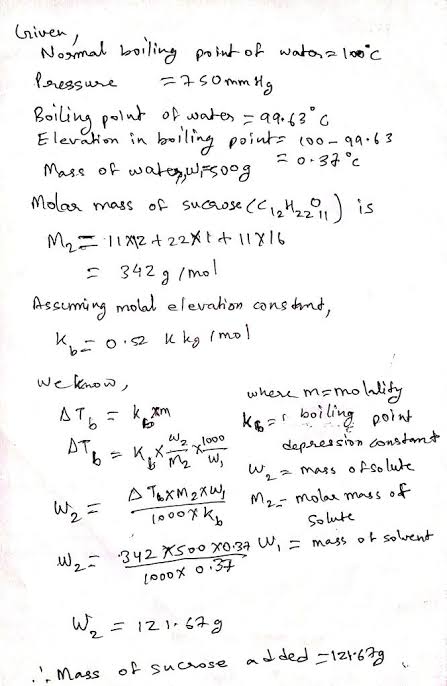 Given,
Normal boiling point of water = 100°C
Pressure = 750mmHg
Boiling point of water = 99.63°C
Elevation in boiling point = 100 - 99.63
= 0.37°C
Mass of water, w₁=500g
Molar mass of sucrose (C₁₂H₂₂O₁₁) is
M₂ = 11X12 + 22X1 + 11X16
= 342 g/mol
Assuming molal elevation constant,
K_b = 0.52 K kg/mol
We know,
ΔT_b = k_b x m
ΔT_b = K_b X W₂/M₂ X 1000/W₁
W₂ = ΔT_b X M₂ X W₁ / 1000 X K_b
W₂ = 342 X 500 X 0.37 / 1000 X 0.37
W₂ = 121.67g
∴ Mass of sucrose added = 121.67g
where m = molality
K_b = boiling point
depression constant
W₂ = mass of solute
M₂ - molar mass of
solute
W₁ = mass of solvent